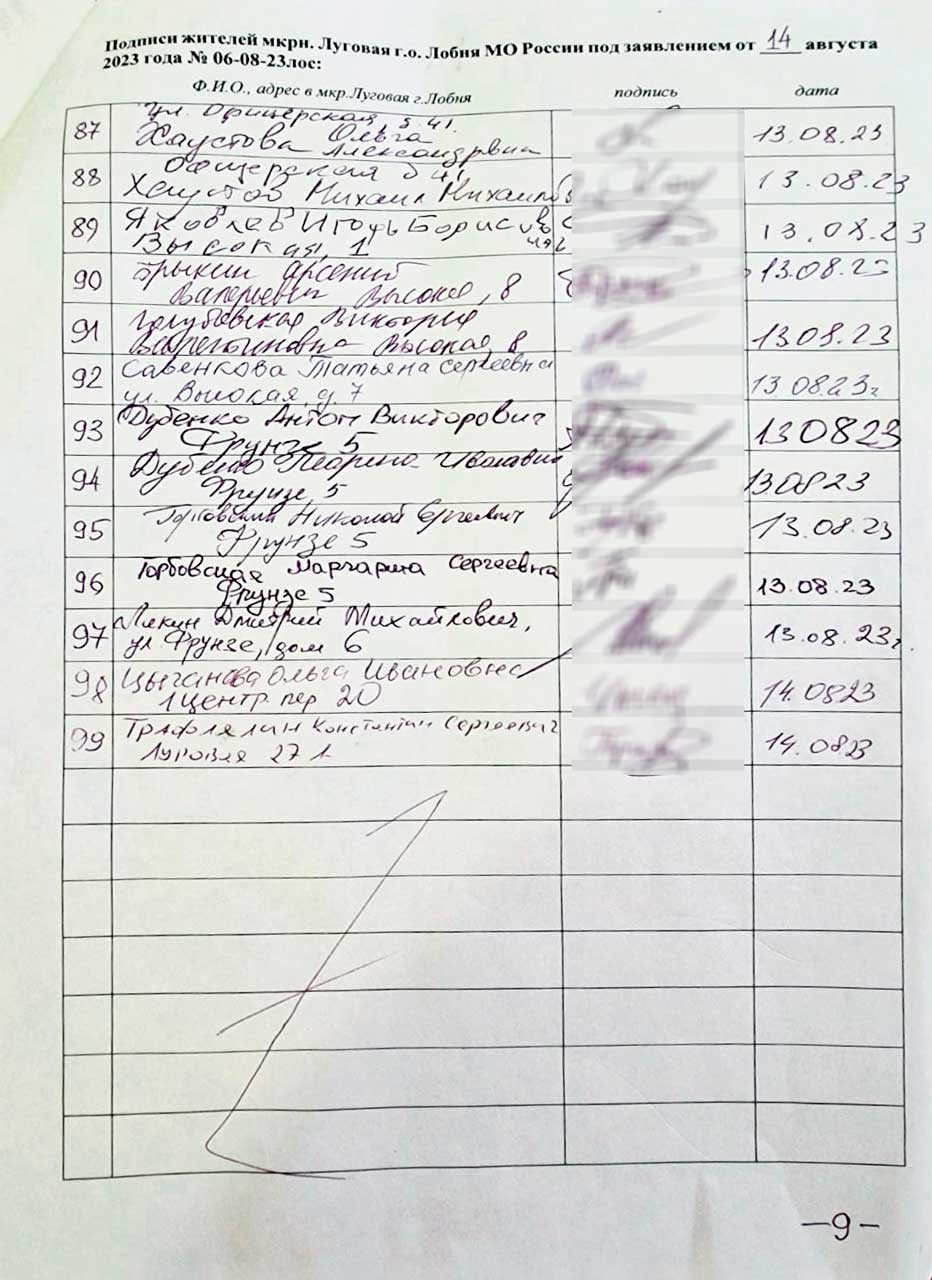 Подписи жителей мкрн. Луговая г.о. Лобня МО России под заявлением от 14 августа
2023 года № 06-08-23лос:
Ф.И.О., адрес в мкр.Луговая г.Лобня подпись дата
ул. Офицерская, д. 41.
87 Хаустова Ольга 13.08.23
Александрвна
88 Офицерская д 41, 13.08.23
Хаустов Михаил Михайлов
89 Яковлев Игорь Борисов 13.08.23
Высокая, 1
90 Арсений 13.08.23
Валерьевич Высокая, 8
91 Виктория 13.08.23
Высокая 8
92 Савенкова Татьяна Сергеевна 13.08.23г
ул. Высокая, д. 7
93 Дубенко Антон Викторович 130823
Фрунзе 5
94 Дубенко 130823
Фрунзе, 5
95 Николай Сергеевич 13.08.23
Фрунзе 5
96 Торбовская Маргарита Сергеевна 13.08.23
Фрунзе 5
97 Дмитрий Михайлович, 13.08.23г.
ул. Фрунзе, дом 6
98 Цыганова Ольга Ивановна 14.0823
1 центр. пер 20
99 Константин Сергеевич 14.0823
27
-9-